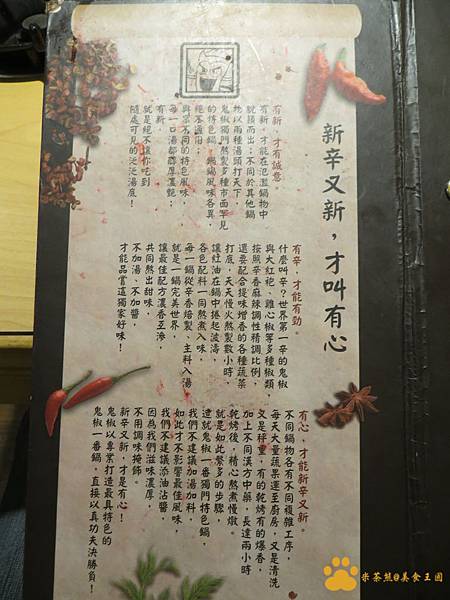 新辛又新，才叫有心
有新，才有誠意。
有新，才能在氾濫鍋物中
就頸而出，不同於其他鍋
物以兩種湯頭打天下，
鬼椒獨門熬製多種市面罕見
的特色鍋，鍋鍋風味各異，
絕不適用，
與眾不同的特色風味，
每一口湯都醇厚濃艷；
有新，
就是絕不讓你吃到
隨處可見的泛泛湯底！
有辛，才能有勁。
什麼叫辛？世界第一辛的鬼椒
與大紅袍、雞心椒等多種椒類，
按照辛香麻辣調性精調比例，
還要配合提味增香的各種蔬菜
打底，天天慢火熬製數小時，
讓紅油在鍋中捲起波濤，
各色配料一同熬煮入味，
每一鍋從辛香焙製、主料入湯
就是一鍋完美世界，
讓最佳配方濃香互滲，
共同熬出甜味，
不加湯、不加醬，
才能品嘗這獨家好味！
有心，才能新辛又新。
不同鍋物各有不同複雜工序，
每天大量蔬果運至廚房，又是清洗
又是秤重，有的乾烤有的爆香，
加上不同漢方中藥，長達兩小時
乾烤後，精心熬煮慢燉。
就是如此繁多的步驟，
造就鬼椒一番獨門特色鍋，
我們不建議加湯加料，
如此才不影響最佳風味，
我們不建議添油沾醬，
因為我們滋味濃厚，
不用調味掩飾。
新辛又新，才是有心！
鬼椒以專業打造最具特色的
鬼椒一番鍋，直接以真功夫決勝負！
米茶熊@美食王國